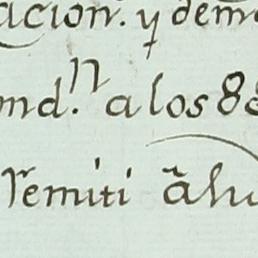 acion. y dem
md.n a los 88
Remiti à lu